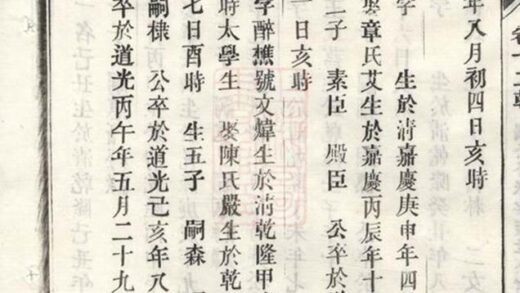 卷十二
年八月初四日亥時
字 生於清嘉慶庚申年四
娶章氏艾生於嘉慶丙辰年十
二子 素臣 殿臣 公卒於
一日亥時
字醉樵號文煒生於清乾隆甲
時太學生 娶陳氏嚴生於乾
七日酉時 生五子 嗣森
嗣棣 公卒於道光己亥年八
卒於道光丙午年五月二十九